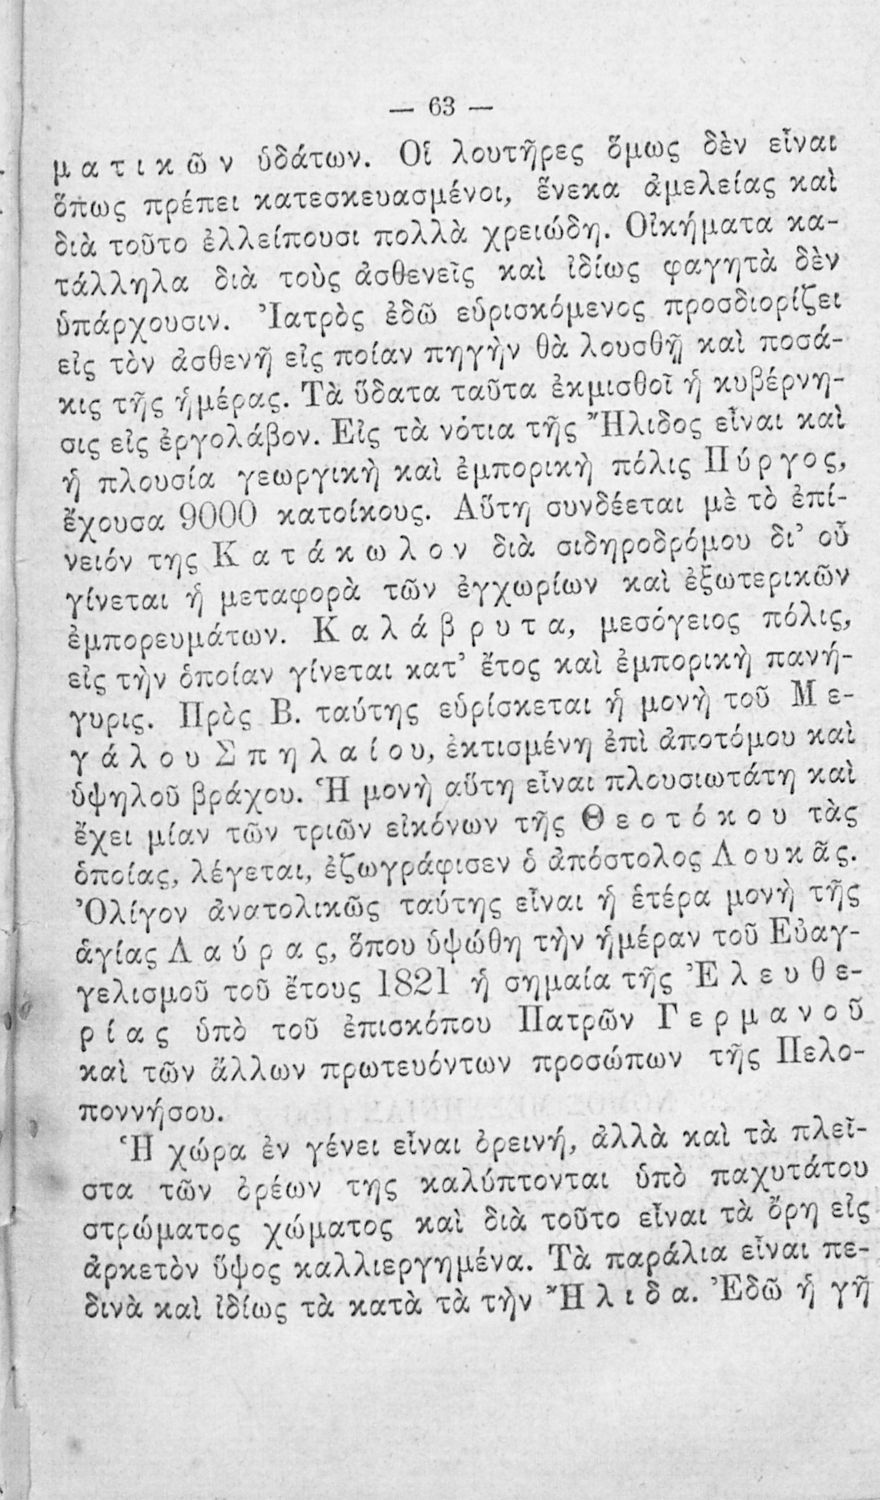 — 63 —
ματικῶν ὑδάτων. Οἱ λουτῆρες ὅμως δὲν εἶναι
ὅπως πρέπει κατεσκευασμένοι, ἕνεκα ἀμελείας καὶ
διὰ τοῦτο ἐλλείπουσι πολλὰ χρειώδη. Οἰκήματα κα-
τάλληλα διὰ τοὺς ἀσθενεῖς καὶ ἰδίως φαγητὰ δὲν
ὑπάρχουσιν. Ἰατρὸς ἐδῶ εὑρισκόμενος προσδιορίζει
εἰς τὸν ἀσθενῆ εἰς ποίαν πηγὴν θὰ λουσθῇ καὶ ποσά-
κις τῆς ἡμέρας. Τὰ ὕδατα ταῦτα ἐκμισθοῖ ἡ κυβέρνη-
σις εἰς ἐργολάβον. Εἰς τὰ νότια τῆς Ἤλιδος εἶναι καὶ
ἡ πλουσία γεωργικὴ καὶ ἐμπορικὴ πόλις Πύργος,
ἔχουσα 9000 κατοίκους. Αὕτη συνδέεται μὲ τὸ ἐπί-
νειόν της Κατάκωλον διὰ σιδηροδρόμου δι’ οὗ
γίνεται ἡ μεταφορὰ τῶν ἐγχωρίων καὶ ἐξωτερικῶν
ἐμπορευμάτων. Καλάβρυτα, μεσόγειος πόλις,
εἰς τὴν ὁποίαν γίνεται κατ’ ἔτος καὶ ἐμπορικὴ πανή-
γυρις. Πρὸς Β. ταύτης εὑρίσκεται ἡ μονὴ τοῦ Με-
γάλου Σπηλαίου, ἐκτισμένη ἐπὶ ἀποτόμου καὶ
ὑψηλοῦ βράχου. Ἡ μονὴ αὕτη εἶναι πλουσιωτάτη καὶ
ἔχει μίαν τῶν τριῶν εἰκόνων τῆς Θεοτόκου τὰς
ὁποίας, λέγεται, ἐζωγράφισεν ὁ ἀπόστολος Λουκᾶς.
Ὀλίγον ἀνατολικῶς ταύτης εἶναι ἡ ἑτέρα μονὴ τῆς
ἁγίας Λαύρας, ὅπου ὑψώθη τὴν ἡμέραν τοῦ Εὐαγ-
γελισμοῦ τοῦ ἔτους 1821 ἡ σημαία τῆς Ἐλευθε-
ρίας ὑπὸ τοῦ ἐπισκόπου Πατρῶν Γερμανοῦ
καὶ τῶν ἄλλων πρωτευόντων προσώπων τῆς Πελο-
ποννήσου.
Ἡ χώρα ἐν γένει εἶναι ὀρεινή, ἀλλὰ καὶ τὰ πλεῖ-
στα τῶν ὀρέων της καλύπτονται ὑπὸ παχυτάτου
στρώματος χώματος καὶ διὰ τοῦτο εἶναι τὰ ὄρη εἰς
ἀρκετὸν ὕψος καλλιεργημένα. Τὰ παράλια εἶναι πε-
δινὰ καὶ ἰδίως τὰ κατὰ τὰ τὴν Ἤλιδα. Ἐδῶ ἡ γῆ